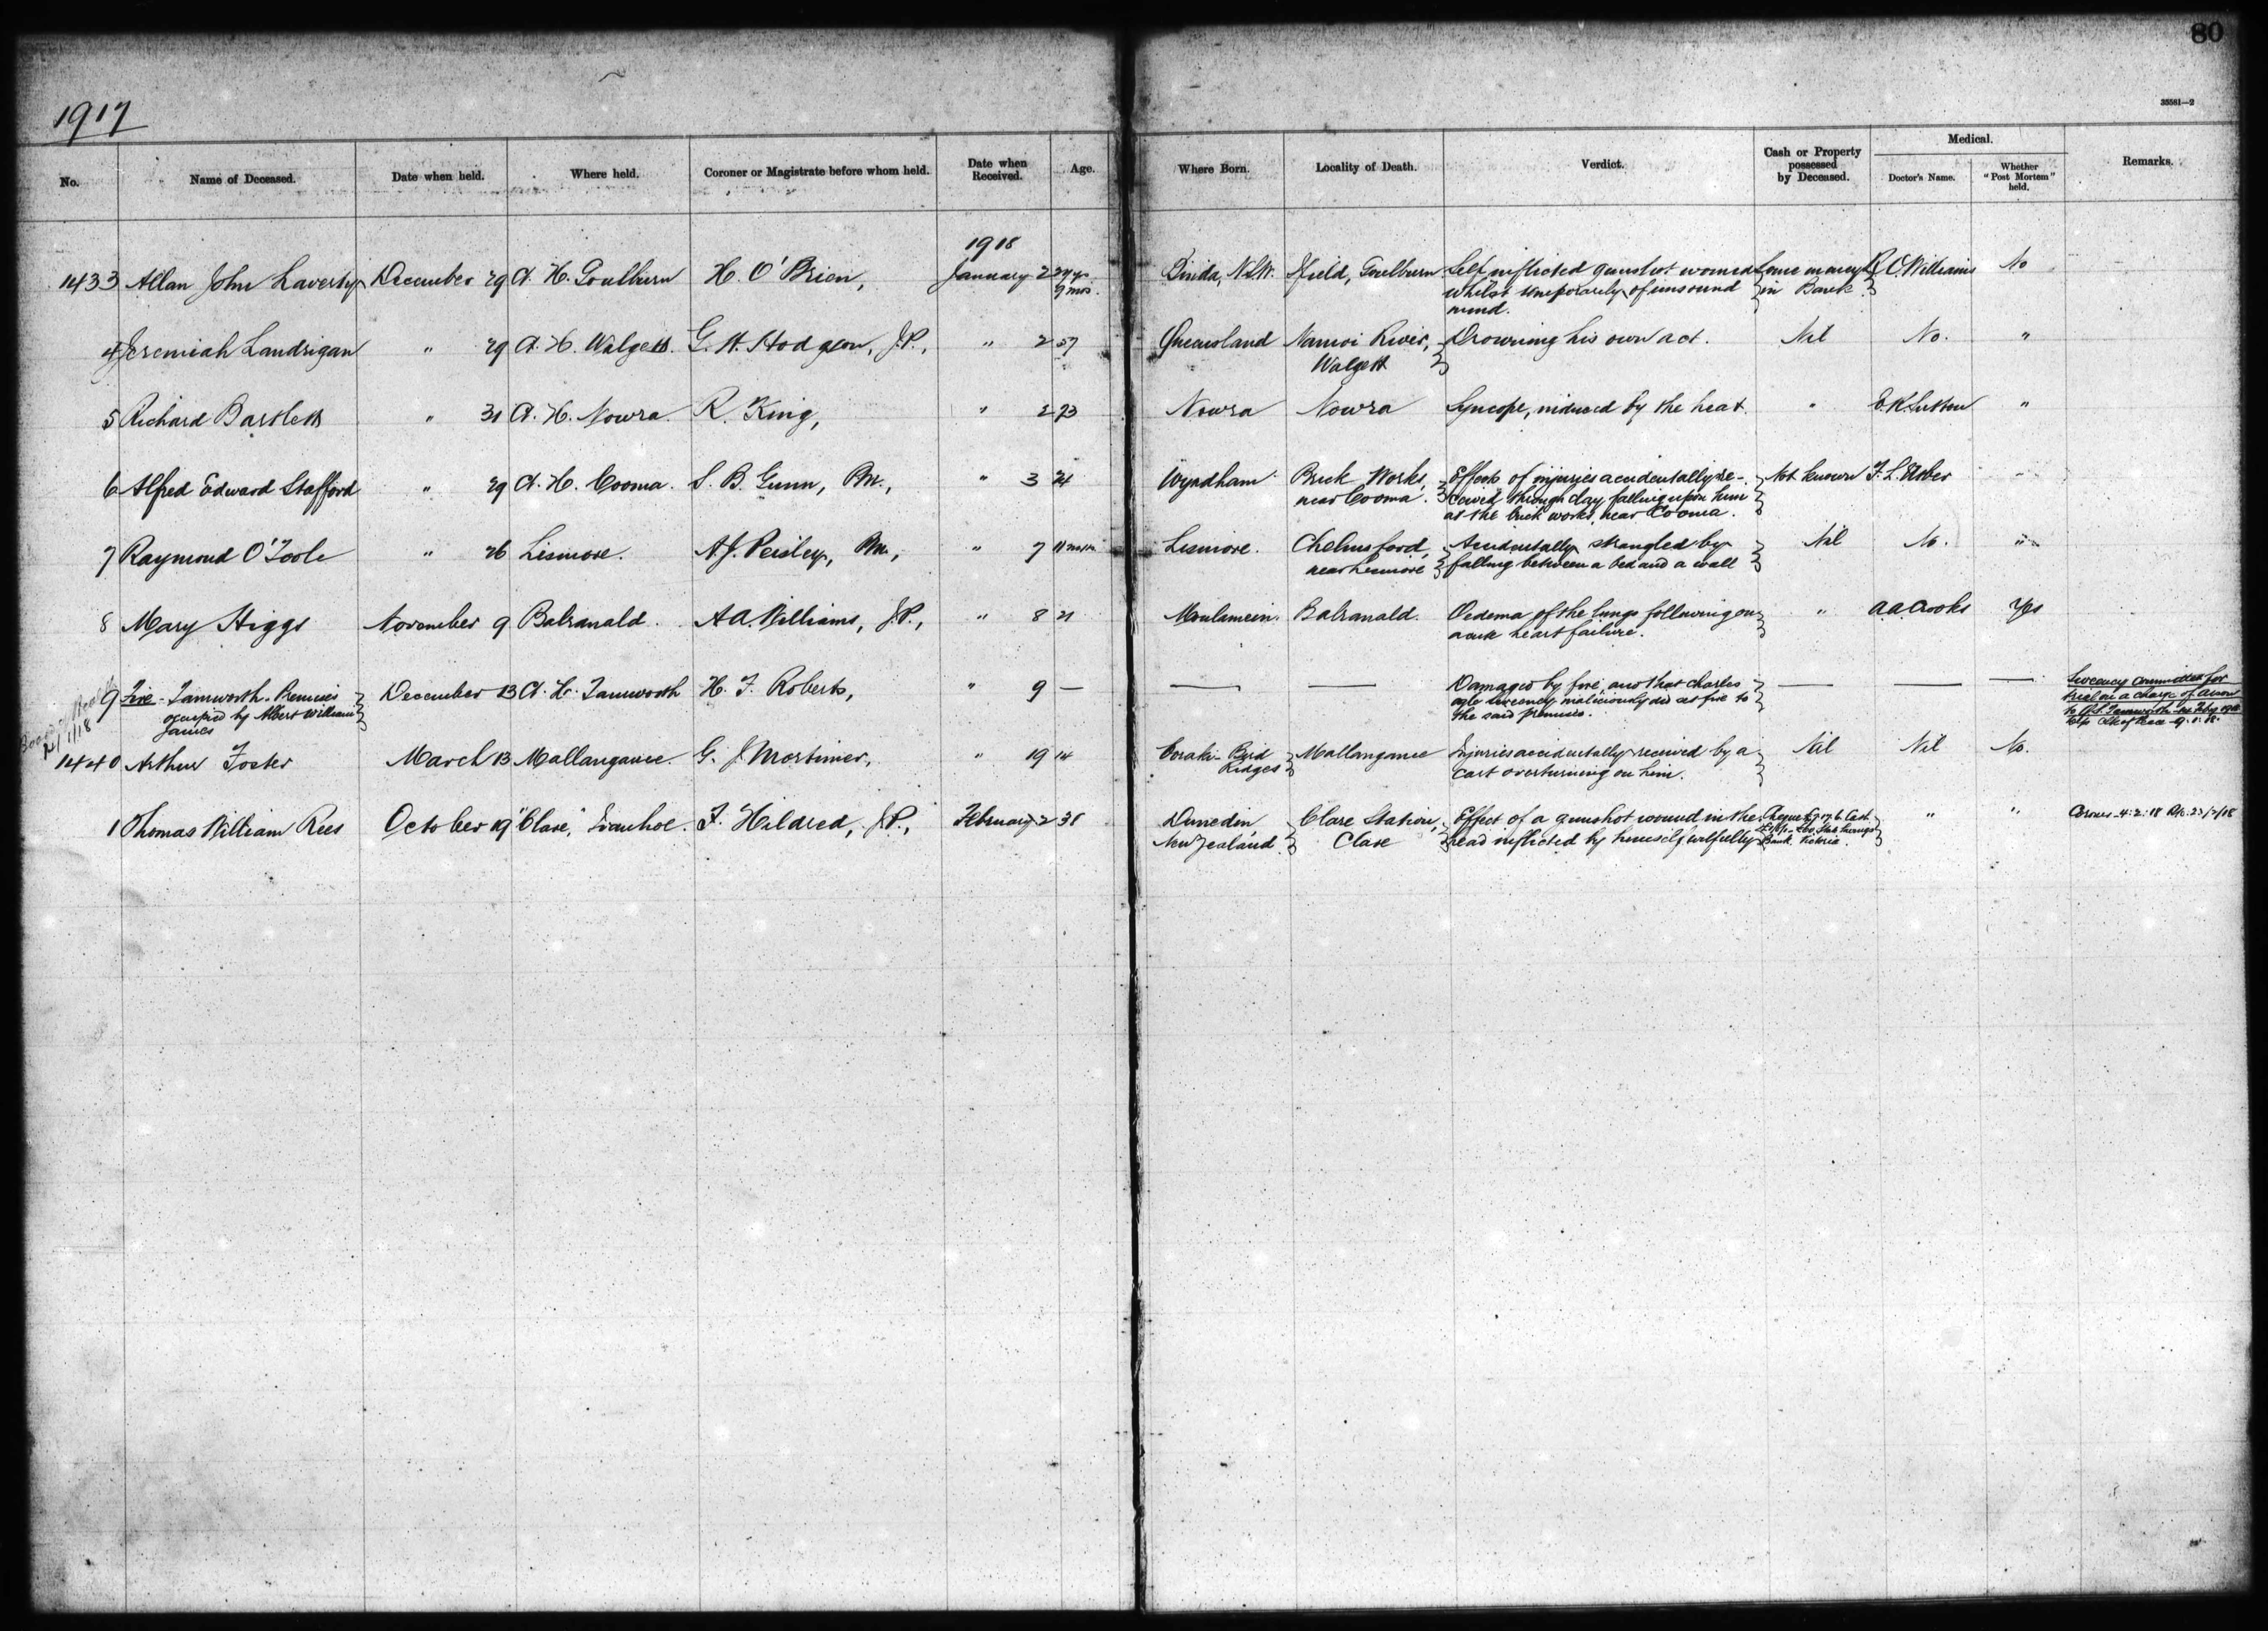 80
1917
35581—2
No. Name of Deceased. Date when held. Where held. Coroner or Magistrate before whom held. Date when Received. Age. Where Born. Locality of Death. Verdict. Cash or Property possessed by Deceased. Medical. Doctor's Name. Whether "Post Mortem" held. Remarks.
1918
1433 Allan John Laverty December 29 C. H. Goulburn H. O'Brien, January 2 24 yrs 9 mos. Binda, N.S.W. Ifield, Goulburn Self inflicted gunshot wound Some money R. O. Williams No
whilst temporarily of unsound in Bank
mind.
4 Jeremiah Landrigan " 29 C. H. Walgett. G. H. Hodgson, J.P., " 2 57 Queensland Namoi River, Drowning his own act. Nil No. "
Walgett
5 Richard Bartlett " 31 C. H. Nowra. R. King, " 2 73 Nowra Nowra Syncope, induced by the heat. " E. K. Sutton "
6 Alfred Edward Stafford " 29 C. H. Cooma. S. B. Gunn, P.M., " 3 21 Wyndham Brick Works, Effects of injuries accidentally re- Not known F. L.
near Cooma. ceived through clay falling upon him
at the brick works, near Cooma.
7 Raymond O'Toole " 26 Lismore. A. J. Peisley, P.M., " 7 11 mos. Lismore. Chelmsford, Accidentally strangled by Nil No. "
near Lismore falling between a bed and a wall
8 Mary Higgs November 9 Balranald. A. A. Williams, J.P., " 8 21 Moulamein. Balranald. Oedema of the lungs following on " A. A. Crooks Yes
acute heart failure.
9 Fire - Tamworth - Premises December 13 C. H. Tamworth H. F. Roberts, " 9 — — — Damaged by fire, and that Charles — — — Sweeney committed for
occupied by Albert William Sweeney maliciously did set fire to trial on a charge of arson
James the said premises.
1440 Arthur Foster March 13 Mallanganee. G. J. Mortimer, " 19 14 Coraki - Mallanganee Injuries accidentally received by a Nil Nil No.
Ridges cart overturning on him.
1 Thomas William Rees October 19 "Clare," Ivanhoe. F. Hildred, J.P., February 2 38 Dunedin Clare Station, Effect of a gunshot wound in the Cheque " "
New Zealand. Clare head inflicted by himself wilfully Bank. Victoria.